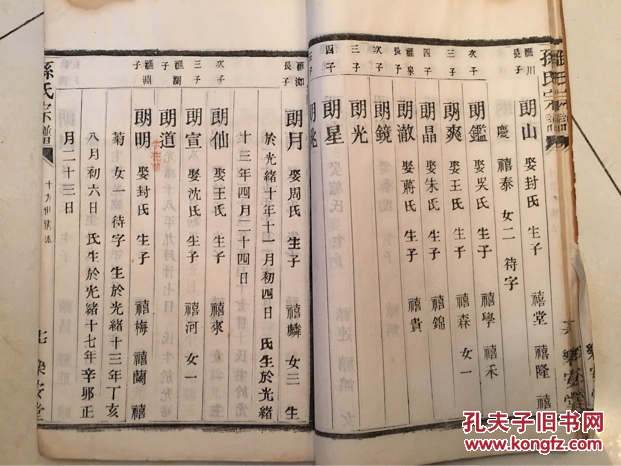 孫氏宗譜
匯川長子 朗山 娶封氏 生子 禧堂 禧隆 禧
慶 禧泰 女二 待字
三子 朗鑑 娶吳氏 生子 禧學 禧禾
三子 朗爽 娶王氏 生子 禧森 女一
四子 朗晶 娶朱氏 生子 禧錦
匯泉長子 朗澈 娶蔣氏 生子 禧貴
次子 朗鏡
三子 朗光
四子 朗星
朗
樂安堂
匯 長子 朗月 娶周氏 生子 禧麟 女三 生
於光緒十年十一月初四日 氏生於光緒
十三年四月二十四日
次子 朗仙 娶王氏 生子 禧來
三子 朗宣 娶沈氏 生子 禧河 女一
匯瀾子 朗道
匯 子 朗明 娶封氏 生子 禧梅 禧蘭 禧
菊 女一 待字 生於光緒十三年丁亥
八月初六日 氏生於光緒十七年辛卯正
月二十三日
孫氏宗譜
七 樂安堂
孔夫子旧书网
www.kongfz.com